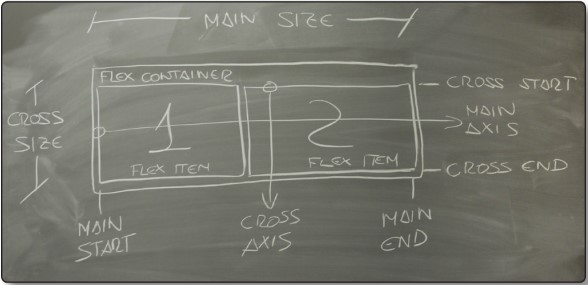 MAIN SIZE
FLEX CONTAINER
CROSS START
CROSS
SIZE
1
2
MAIN
AXIS
FLEX ITEM
FLEX ITEM
CROSS END
MAIN
START
CROSS
AXIS
MAIN
END